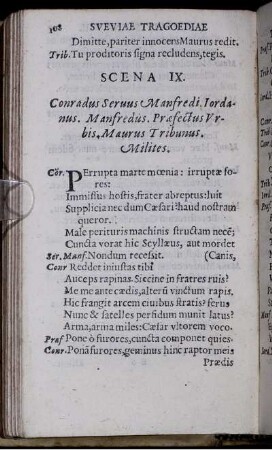 108 SVEVIAE TRAGOEDIAE
Dimitte, pariter innocens Maurus redit.
Trib. Tu proditoris signa recludens, tegis.
SCENA IX.
Conradus Seruus Manfredi. Iorda-
nus. Manfredus. Præfectus Vr-
bis. Maurus Tribunus.
Milites.
Cōr. PErrupta marte mœnia: irruptæ fo-
res:
Immissus hostis, frater abreptus: luit
Supplicia nec dum Cæsar: haud nostram
queror.
Male perituris machinis structam necē;
Cuncta vorat hic Scyllæus, aut mordet
Ser. Manf. Nondum recessit. (Canis,
Conr Reddet iniustas tibi
Auceps rapinas. Siccine in fratres ruis?
Me me ante cædis, alterū vinctum rapis.
Hic frangit arcem ciuibus stratis? ferus
Nunc & satelles perfidum munit latus?
Arma, arma miles: Cæsar vltorem voco.
Præf Pone ô furores, cuncta componet quies.
Conr. Ponā furores, geminus hinc raptor meis
Prædis